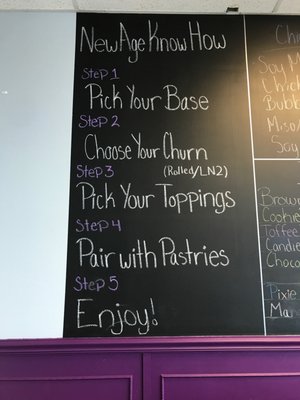 New Age Know How
Step 1
Pick Your Base
Step 2
Choose Your Churn
(Rolled/LN2)
Step 3
Pick Your Toppings
Step 4
Pair with Pastries
Step 5
Enjoy!
Soy M
Chick
Bubb
Miso/
Soy
Brown
Cookie
Toffee
Candie
Choco
Pixie
Mar